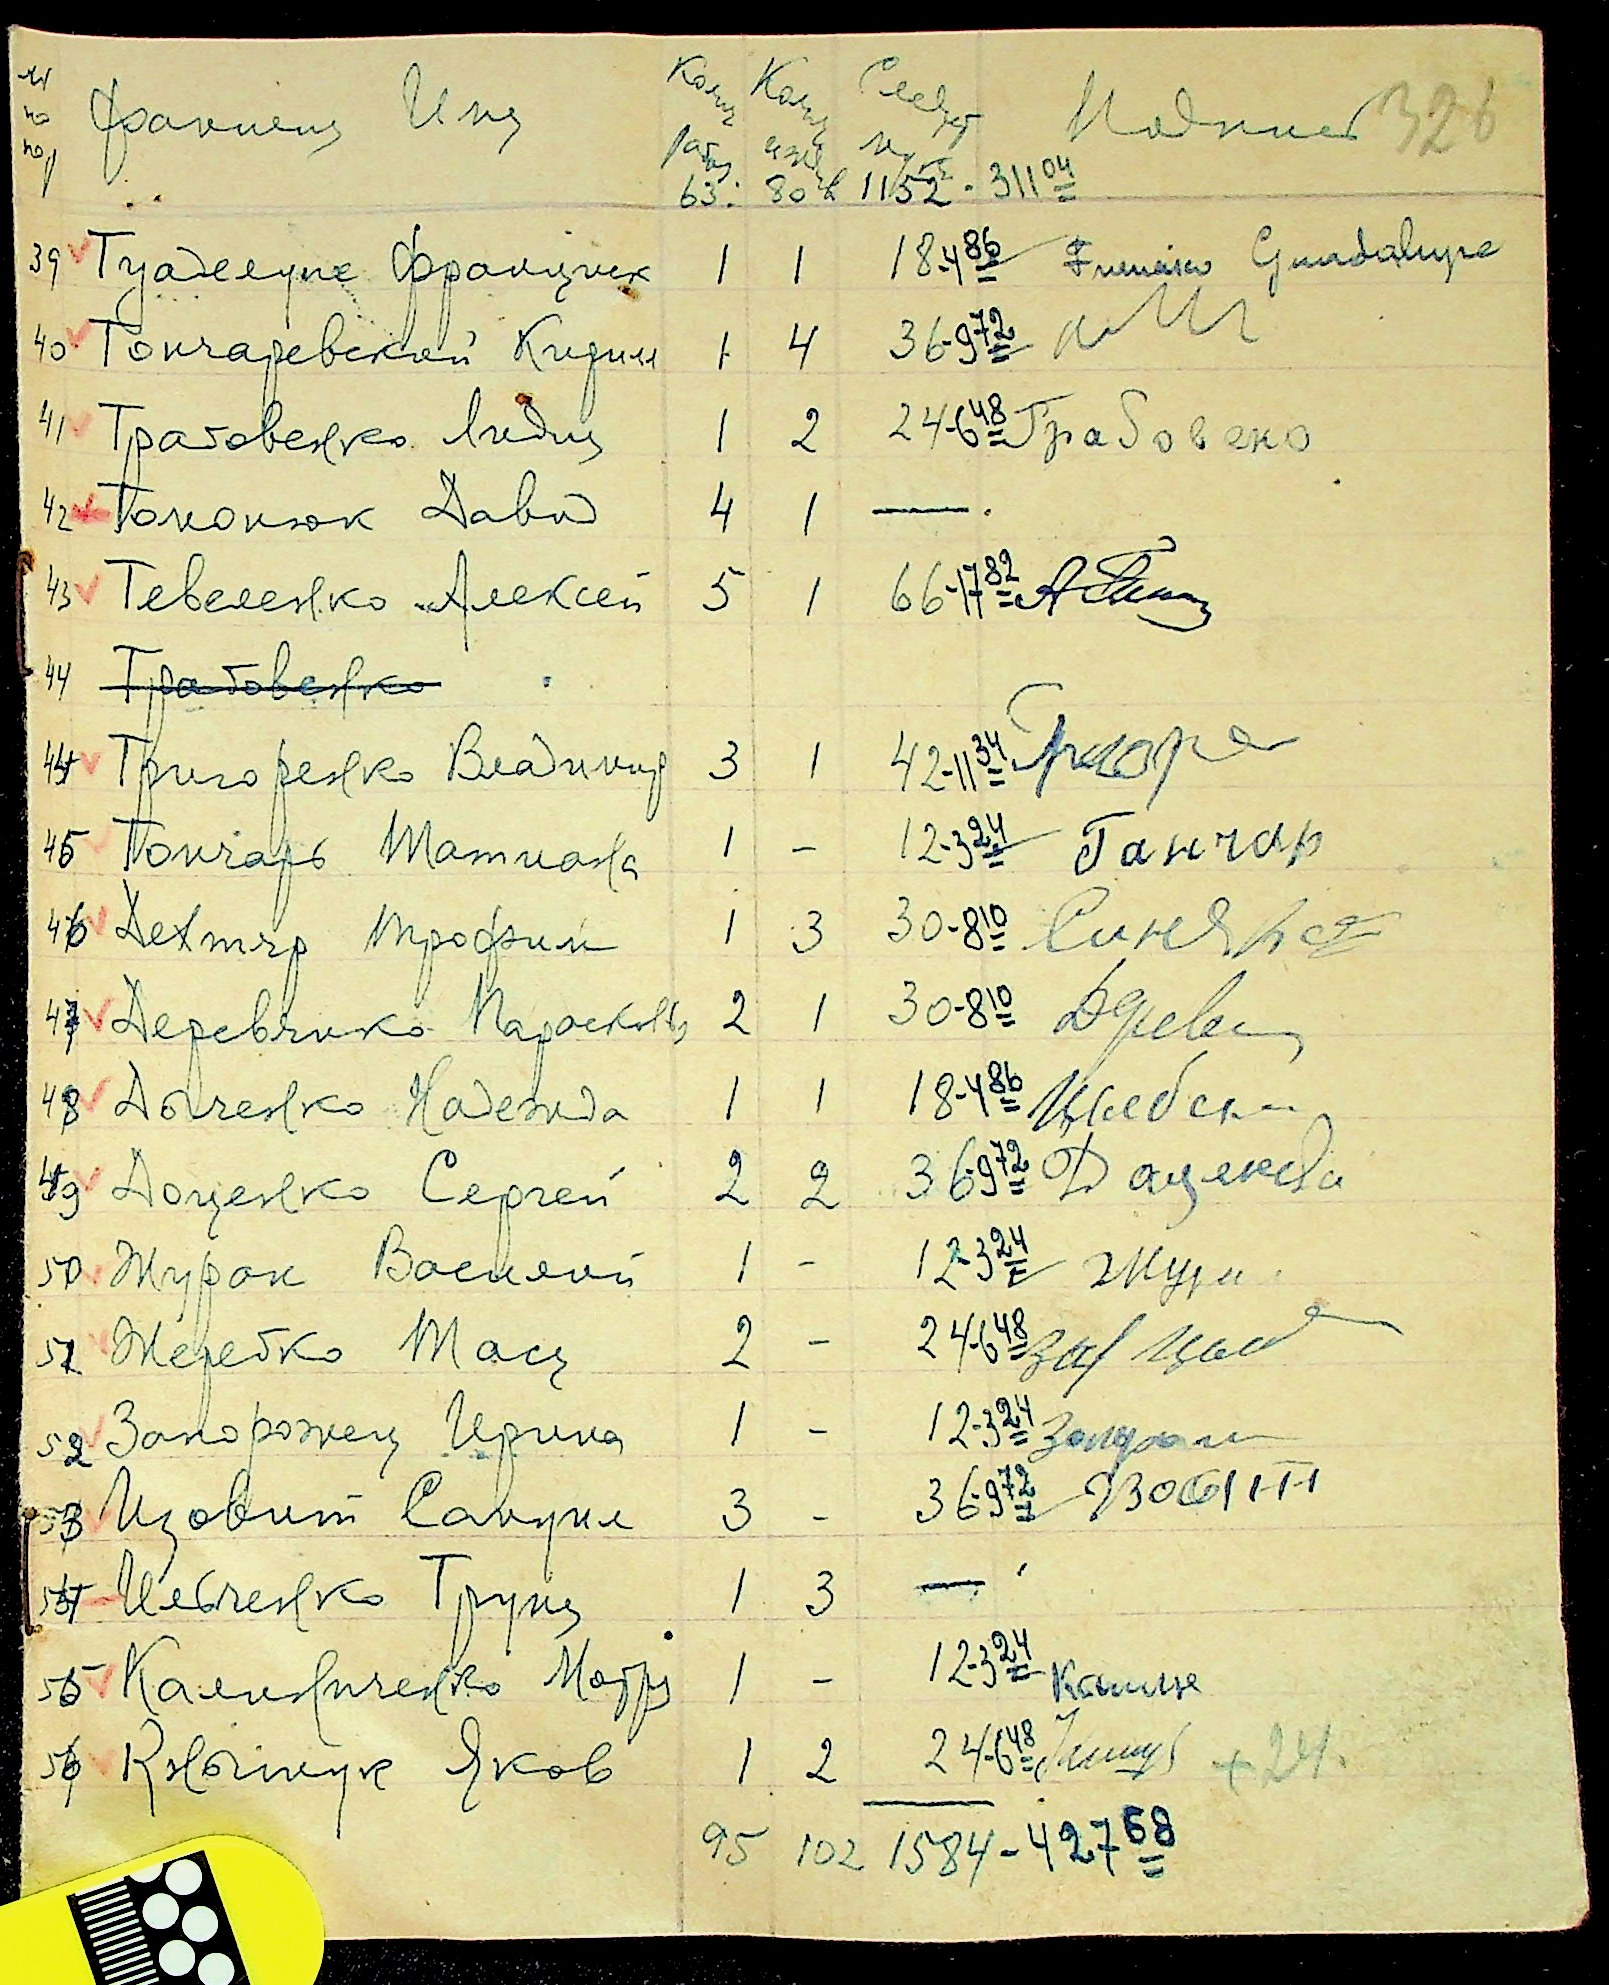 №№ по пор Фамилия Имя Колич работ Колич ижд Следует муки Подпись 326
63. 80 1152 - 311 04
39 Гуаделупе Францишк 1 1 18-4 86 Guadalupe
40 Гончаревский Кирил 1 4 36-9 72
41 Грабовенко Лидия 1 2 24-6 48 Грабовенко
42 Гомонюк Давид 4 1 —
43 Гевеленко Алексей 5 1 66-17 82
44 Грабовенко
44 Григоренко Владимир 3 1 42-11 34 Григоре
45 Гончарь Татиана 1 - 12-3 24 Ганчар
46 Дехтяр Трофим 1 3 30-8 10
47 Деревянко Парасковь 2 1 30-8 10
48 Дьяченко Надежда 1 1 18-4 86
49 Доценко Сергей 2 2 36-9 72
50 Журак Василий 1 - 12-3 24 Жура
51 Жеребко Тася 2 - 24-6 48
52 Запорожец Ирина 1 - 12-3 24
53 Изовит Самуил 3 - 36-9 72
54 Ильченко Груня 1 3 —
55 Калиниченко Мотря 1 - 12-3 24 Калине
56 Кнышук Яков 1 2 24-6 48 +24.
95 102 1584 - 427 68